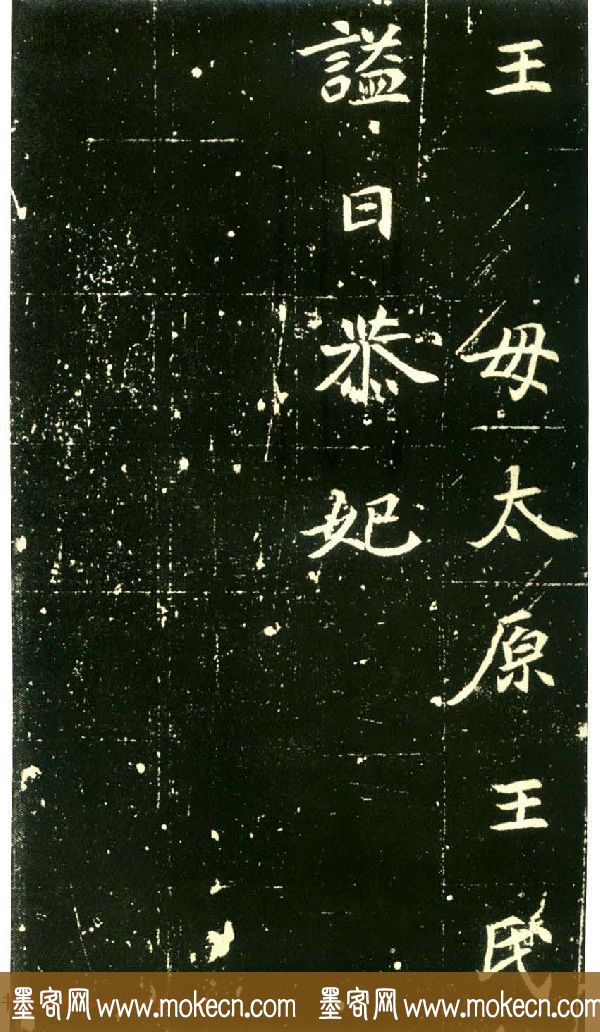 王母太原王氏
謚曰恭妃
墨客网 www.mokecn.com 墨客网 www.mokecn.com